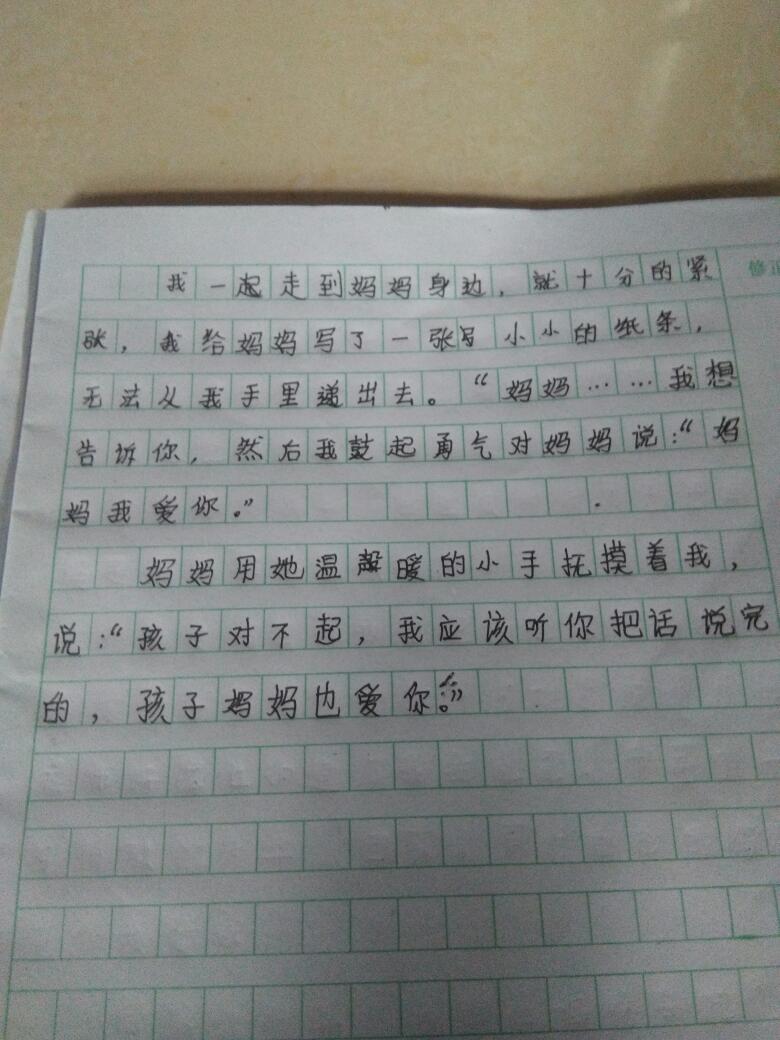 我一起走到妈妈身边，就十分的紧
张，我给妈妈写了一张写小小的纸条，
无法从我手里递出去。“妈妈……我想
告诉你，然后我鼓起勇气对妈妈说：“妈
妈我爱你。”
妈妈用她温馨暖的小手抚摸着我，
说：“孩子对不起，我应该听你把话说完
的，孩子妈妈也爱你。”
修正